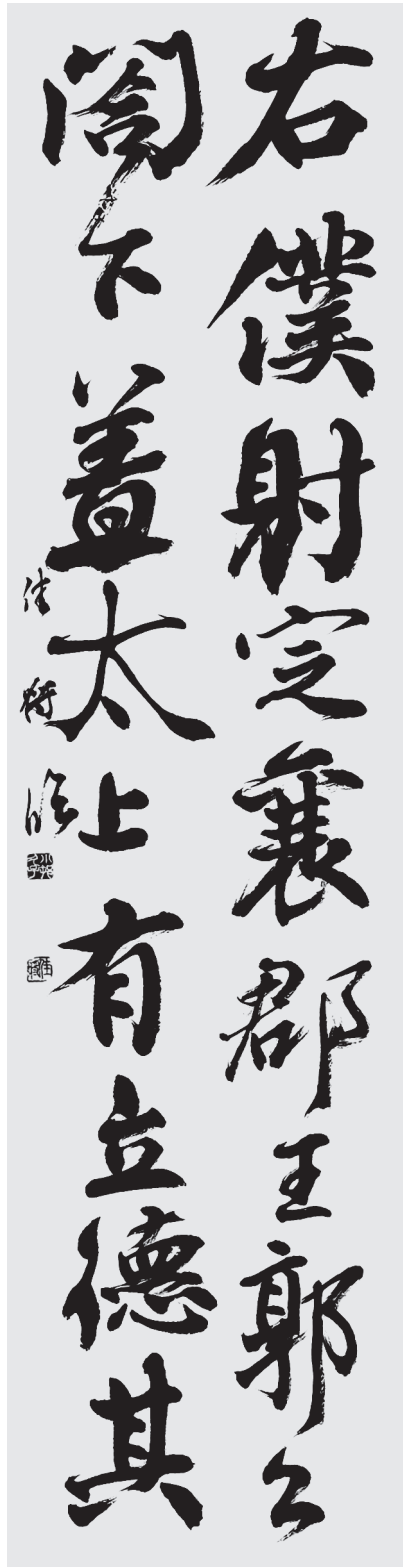 右僕射定襄郡王郭公
閤下蓋太上有立德其
佳舟臨